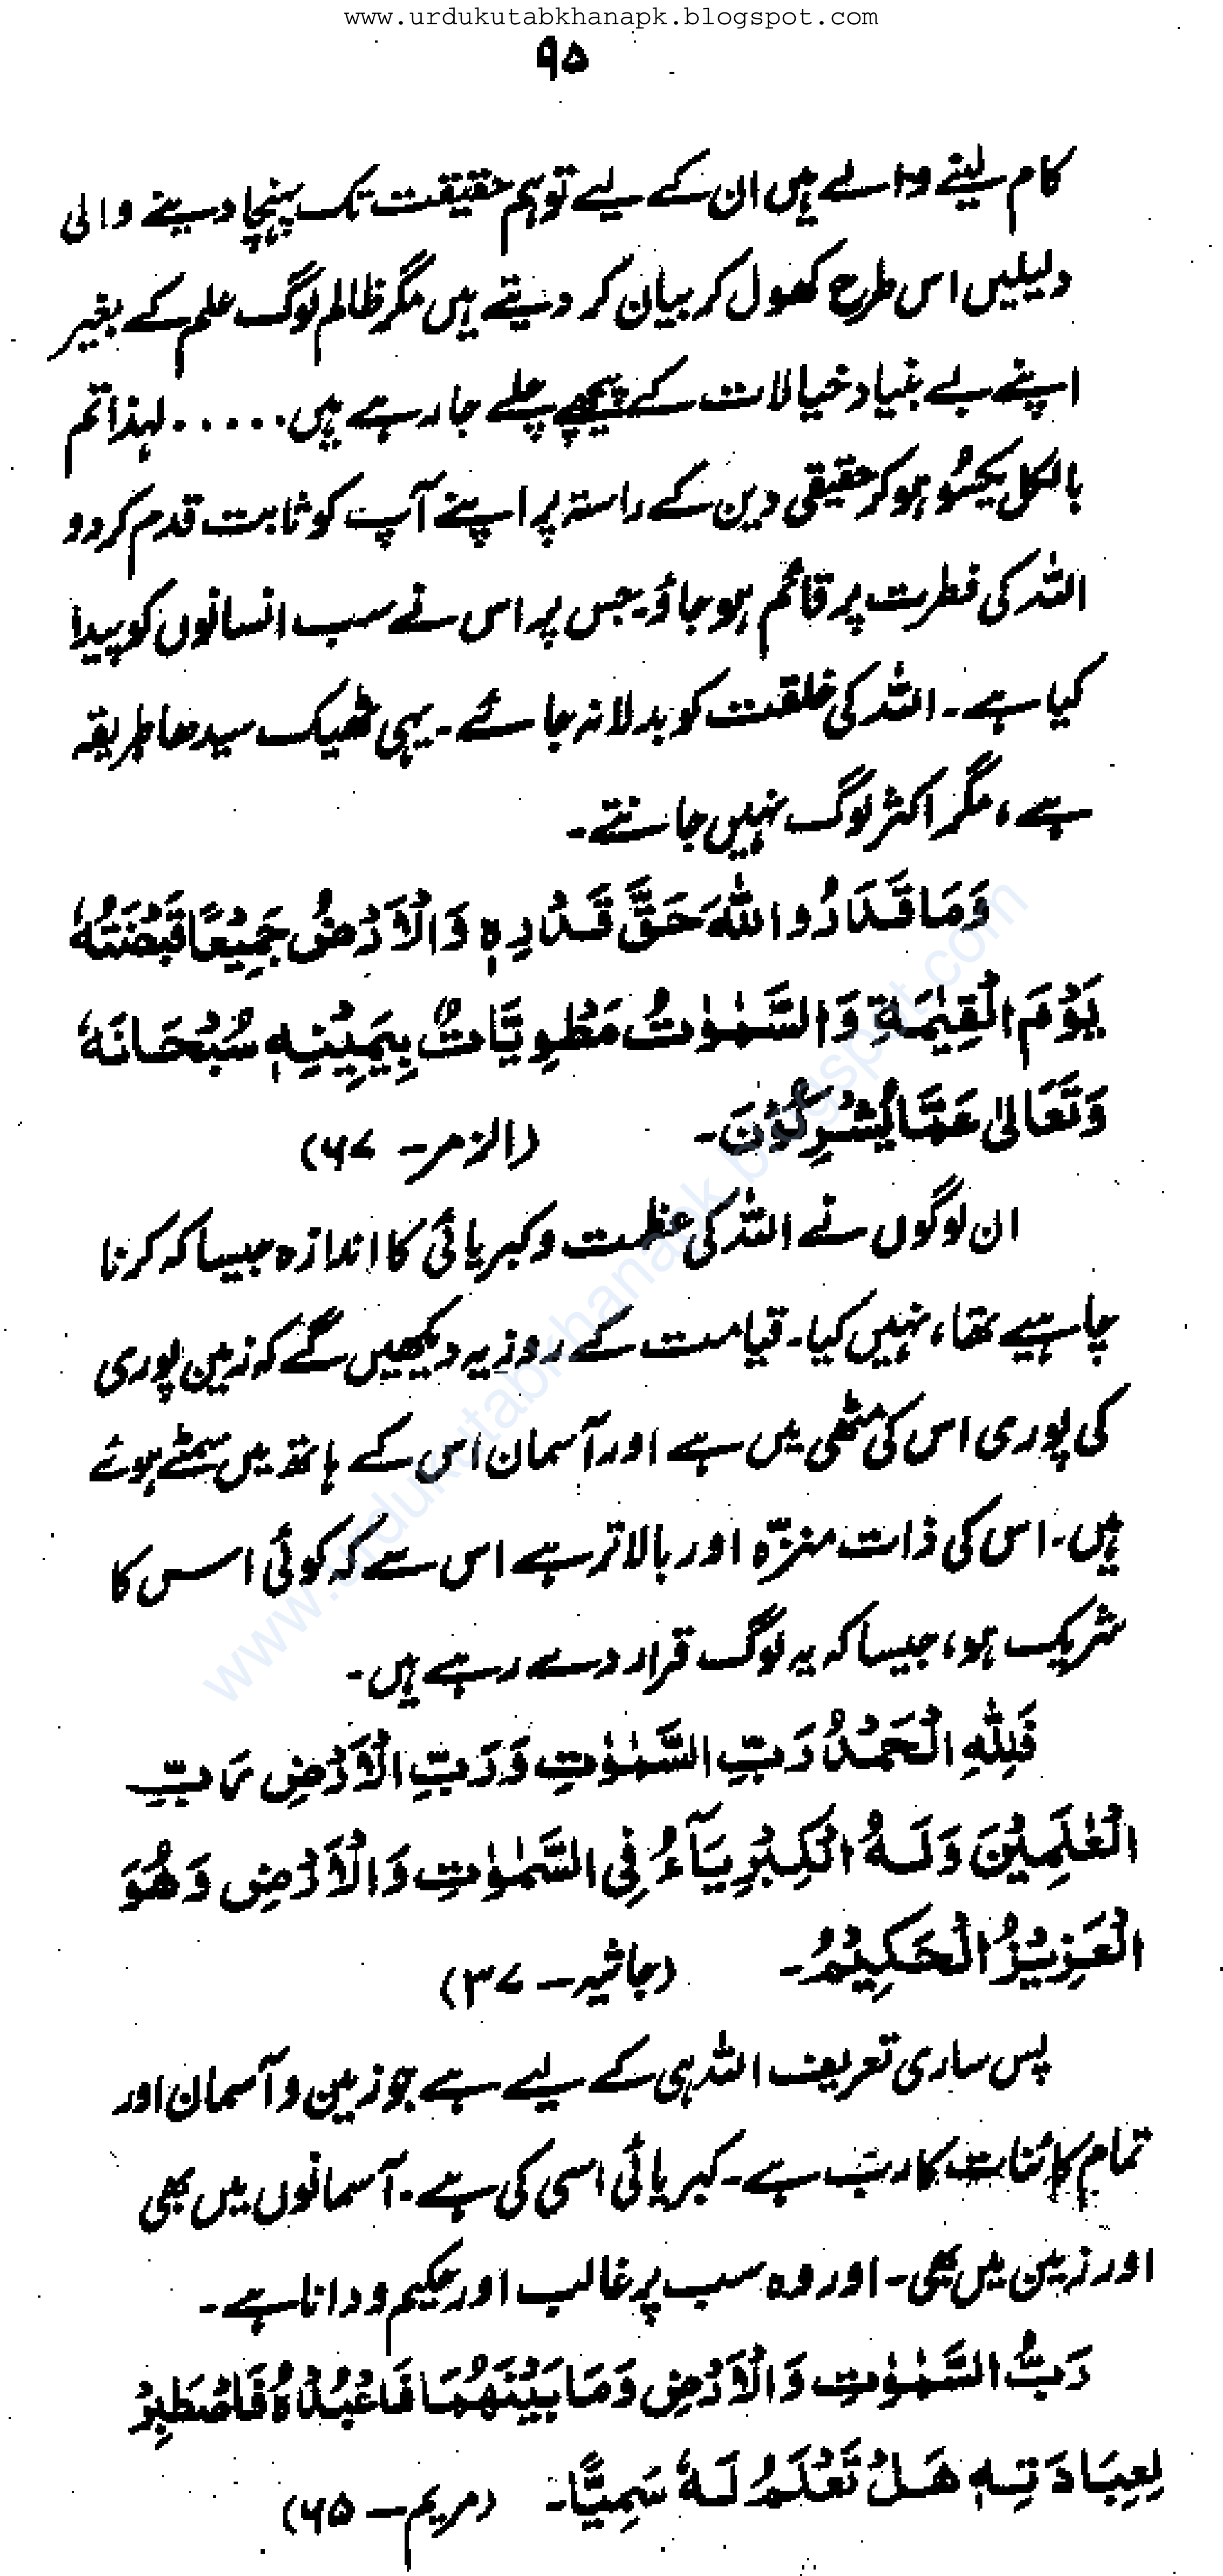 www.urdukutabkhanapk.blogspot.com
۹۵
کام لینے والے ہیں ان کے لیے تو ہم حقیقت تک پہنچا دینے والی
دلیلیں اس طرح کھول کر بیان کر دیتے ہیں مگر ظالم لوگ علم کے بغیر
اپنے بے بنیاد خیالات کے پیچھے چلے جا رہے ہیں ..... لہذا تم
بالکل یکسُو ہو کر حقیقی دین کے راستہ پر اپنے آپ کو ثابت قدم کر دو
اللہ کی فطرت پر قائم ہو جاؤ۔ جس پر اس نے سب انسانوں کو پیدا
کیا ہے۔ اللہ کی خلقت کو بدلا نہ جائے۔ یہی ٹھیک سیدھا طریقہ
ہے، مگر اکثر لوگ نہیں جانتے۔
وَمَا قَدَرُوا اللّٰهَ حَقَّ قَدْرِهٖ وَالْاَرْضُ جَمِيْعًا قَبْضَتُهٗ
يَوْمَ الْقِيٰمَةِ وَالسَّمٰوٰتُ مَطْوِيَّاتٌ بِيَمِيْنِهٖ سُبْحَانَهٗ
وَتَعَالٰى عَمَّا يُشْرِكُوْنَ۔ (الزمر – ۶۷)
ان لوگوں نے اللہ کی عظمت و کبریائی کا اندازہ جیسا کہ کرنا
چاہیے تھا، نہیں کیا۔ قیامت کے روز یہ دیکھیں گے کہ زمین پوری
کی پوری اس کی مٹھی میں ہے اور آسمان اس کے ہاتھ میں سمٹے ہوئے
ہیں۔ اس کی ذات منزّہ اور بالاتر ہے اس سے کہ کوئی اس کا
شریک ہو، جیسا کہ یہ لوگ قرار دے رہے ہیں۔
فَلِلّٰهِ الْحَمْدُ رَبِّ السَّمٰوٰتِ وَرَبِّ الْاَرْضِ رَبِّ
الْعٰلَمِيْنَ وَلَهُ الْكِبْرِيَآءُ فِى السَّمٰوٰتِ وَالْاَرْضِ وَهُوَ
الْعَزِيْزُ الْحَكِيْمُ۔ (جاثیہ – ۳۷)
پس ساری تعریف اللہ ہی کے لیے ہے جو زمین و آسمان اور
تمام کائنات کا ربّ ہے۔ کبریائی اسی کی ہے۔ آسمانوں میں بھی
اور زمین میں بھی۔ اور وہ سب پر غالب اور حکیم و دانا ہے۔
رَبُّ السَّمٰوٰتِ وَالْاَرْضِ وَمَا بَيْنَهُمَا فَاعْبُدْهُ فَاصْطَبِرْ
لِعِبَادَتِهٖ هَلْ تَعْلَمُ لَهٗ سَمِيًّا۔ (مریم – ۶۵)
www.urdukutabkhanapk.blogspot.com